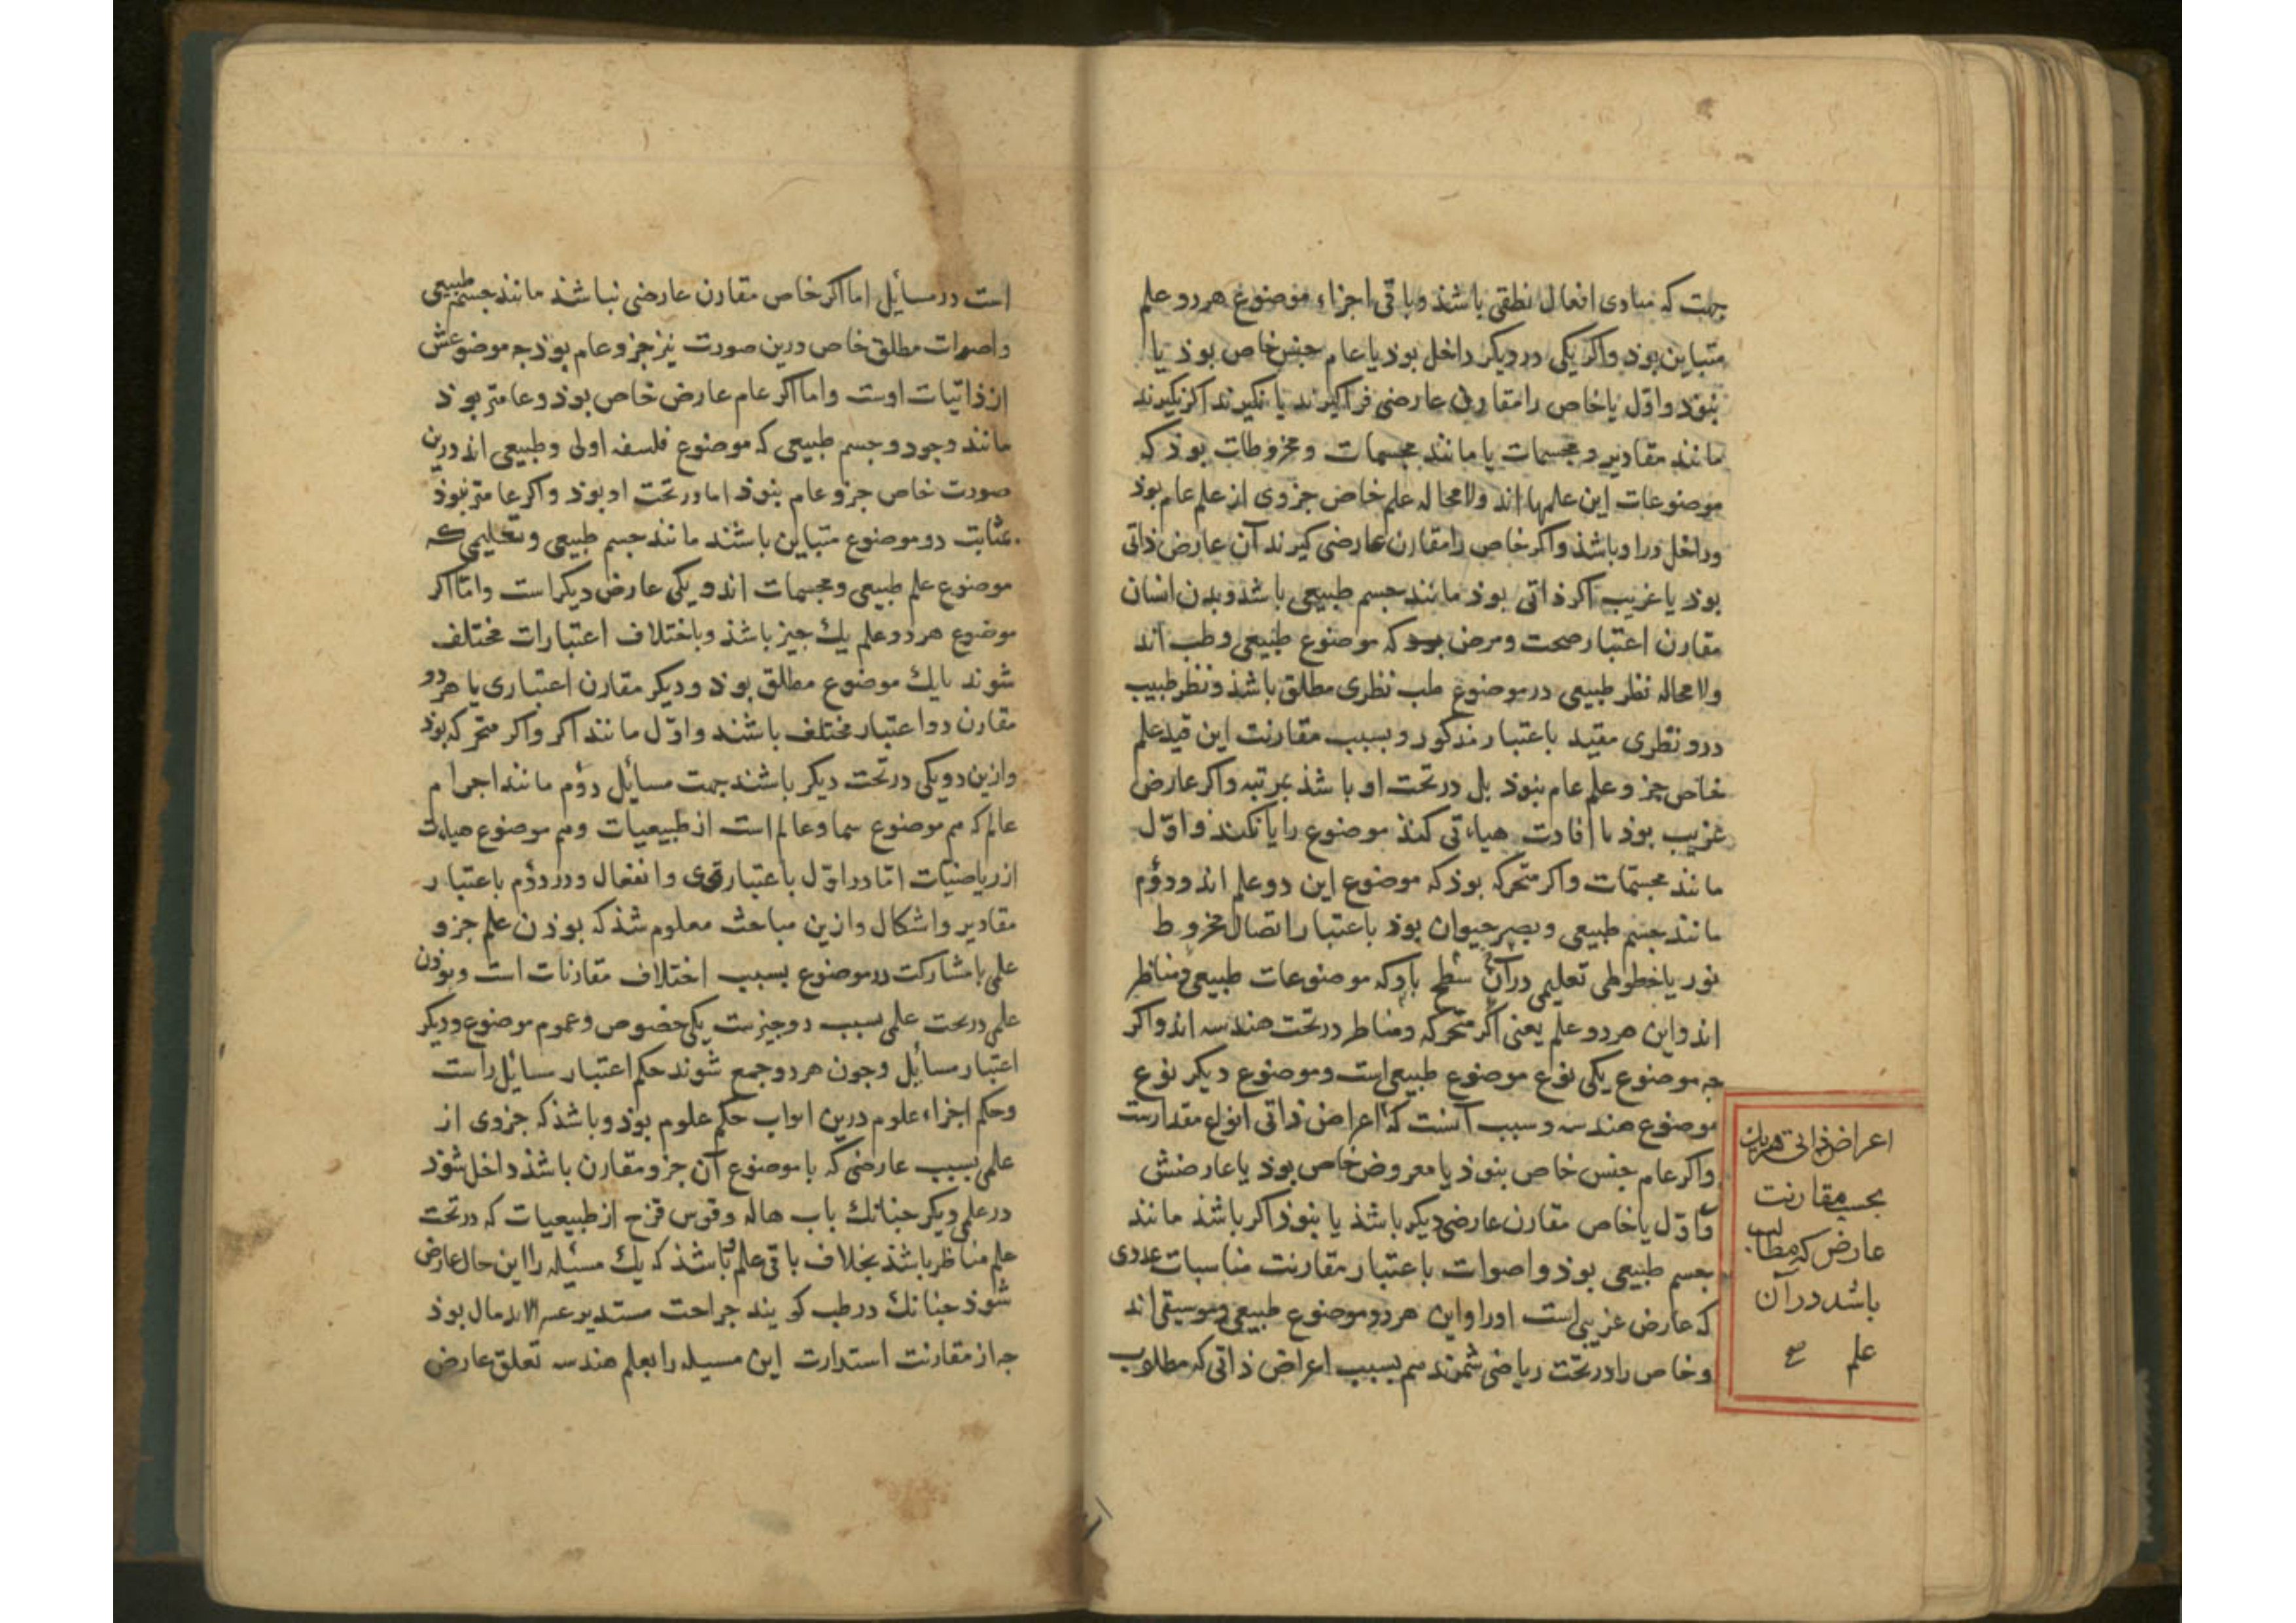 جهت که مبادی افعال نطقی باشذ و باقی اجزاء موضوع هر دو علم
متباین بوذ واکر یکی در دیکر داخل بوذ یا عام جنس خاص بوذ یا
نبوذ و اوّل یا خاص را مقارن عارضی فراکیرند یا نکیرند اکر نکیرند
مانند مقادیر و مجسمات یا مانند مجسمات و مخروطات بوذ که
موضوعات این علمها اند ولامحاله علم خاص جزوی از علم عام بوذ
وداخل درا وباشذ واکر خاص را مقارن عارضی کیرند آن عارض ذاتی
بوذ یا غریب اکر ذاتی بوذ مانند جسم طبیعی باشذ وبدن انسان
مقارن اعتبار صحت ومرض که موضوع طبیعی وطب اند
ولامحاله نظر طبیعی در موضوع طب نظری مطلق باشذ ونظر طبیب
درو نظری مقید باعتبار مذکور وبسبب مقارنت این قید علم
خاص جزو علم عام نبوذ بل در تحت او باشذ بمرتبه واکر عارض
غریب بوذ یا افادت هیاءتی کند موضوع را یا نکند واوّل
مانند مجسّمات واکر متحرکه بوذ که موضوع این دو علم اند ودوم
مانند جسم طبیعی وبصر حیوان بوذ باعتبار اتصال مخروط
نور یا خطوطی تعلیمی در آن سطح باو که موضوعات طبیعی ومناظر
اند واین هر دو علم یعنی اکر متحرکه ومناظر در تحت هندسه اند واکر
جه موضوع یکی نوع موضوع طبیعی است وموضوع دیکر نوع
موضوع هندسه وسبب آنست که اعراض ذاتی انواع مقدارست
واکر عام جنس خاص نبوذ یا معروض خاص بوذ یا عارضش
واوّل یا خاص مقارن عارضی دیکر باشذ یا نبوذ اکر باشذ مانند
جسم طبیعی بوذ واصوات باعتبار مقارنت مناسبات عددی
که عارض غریبی است اورا واین هر دو موضوع طبیعی وموسیقی اند
وخاص را در تحت ریاضی شمرند هم بسبب اعراض ذاتی که مطلوب
اعراض ذاتی
بحسب مقارنت
عارض که مطالب
باشد در آن
علم
است در مسائل اما اکر خاص مقارن عارضی نباشذ مانند جسم طبیعی
واصوات مطلق خاص درین صورت نیز جزو عام بوذ جه موضوعش
از ذاتیات اوست واما اکر عام عارض خاص بوذ وعامتر بوذ
مانند وجود وجسم طبیعی که موضوع فلسفه اولی وطبیعی اند درین
صورت خاص جزو عام نبوذ اما در تحت او بوذ واکر عامتر نبوذ
بمثابت دو موضوع متباین باشند مانند جسم طبیعی وتعلیمی که
موضوع علم طبیعی ومجسمات اند ویکی عارض دیکر است وامّا اکر
موضوع هر دو علم یك جیز باشذ وباختلاف اعتبارات مختلف
شوند یا یك موضوع مطلق بوذ ودیکر مقارن اعتباری یا هر دو
مقارن دو اعتبار مختلف باشند واوّل مانند اکر واکر متحرکه بوذ
وازین دو یکی در تحت دیکر باشند جهت مسائل دوم مانند اجرام
عالم که هم موضوع سما وعالم است از طبیعیات وهم موضوع هیاءت
از ریاضیات امّا در اوّل باعتبار قوی وانفعال ودر دوم باعتبار
مقادیر واشکال وازین مباحث معلوم شذ که بوذن علم جزو
علمی با مشارکت در موضوع بسبب اختلاف مقارنات است وبوذن
علمی در تحت علمی بسبب دو جیزست یکی خصوص وعموم موضوع ودیکر
اعتبار مسائل وجون هر دو جمع شوند حکم اعتبار مسایل راست
وحکم اجزاء علوم درین ابواب حکم علوم بوذ وباشذ که جزوی از
علمی بسبب عارضی که با موضوع آن جزو مقارن باشذ داخل شوذ
در علمی دیکر جنانك باب هاله وقوس قزح از طبیعیات که در تحت
علم مناظر باشذ بخلاف باقی علم وباشذ که یك مسئله را این حال عارض
شوذ جنانك در طب کویند جراحت مستدیر عسر الاندمال بوذ
جه از مقارنت استدارت این مسیله را بعلم هندسه تعلق عارض